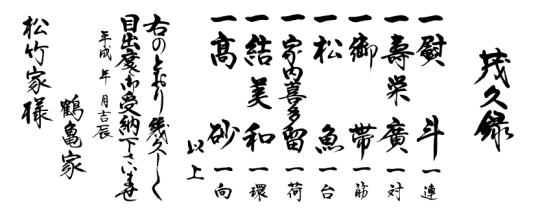 茂久録
一 熨斗 一連
一 壽栄廣 一対
一 御帯 一筋
一 松魚 一台
一 家内喜多留 一荷
一 結美和 一環
一 高砂 一向
以上
右のとおり幾久しく
目出度御受納下さいませ
平成 年 月吉辰
鶴亀家
松竹家様